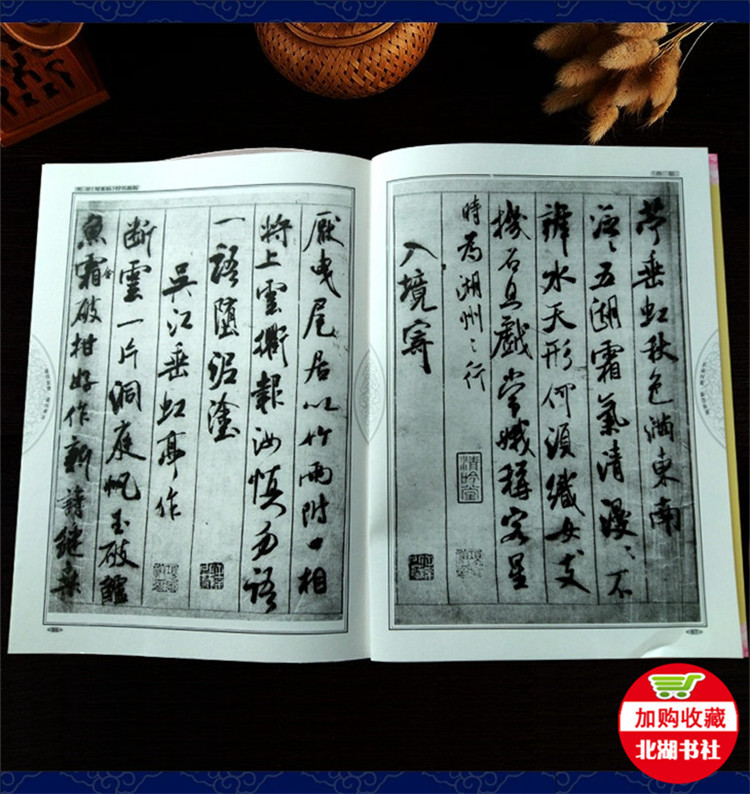 厭曳尾居以竹兩附口相
將上雲衢報汝慎勿語
一語墮泥塗
吳江垂虹亭作
断雲一片洞庭帆玉破鱸
魚霜破柑好作新詩繼桑
苧垂虹秋色滿東南
泛〻五湖霜氣清漫〻不
辨水天形何須織女支
機石且戲常娥稱客星
時為湖州之行
入境寄
清吟堂
加购收藏
北湖书社